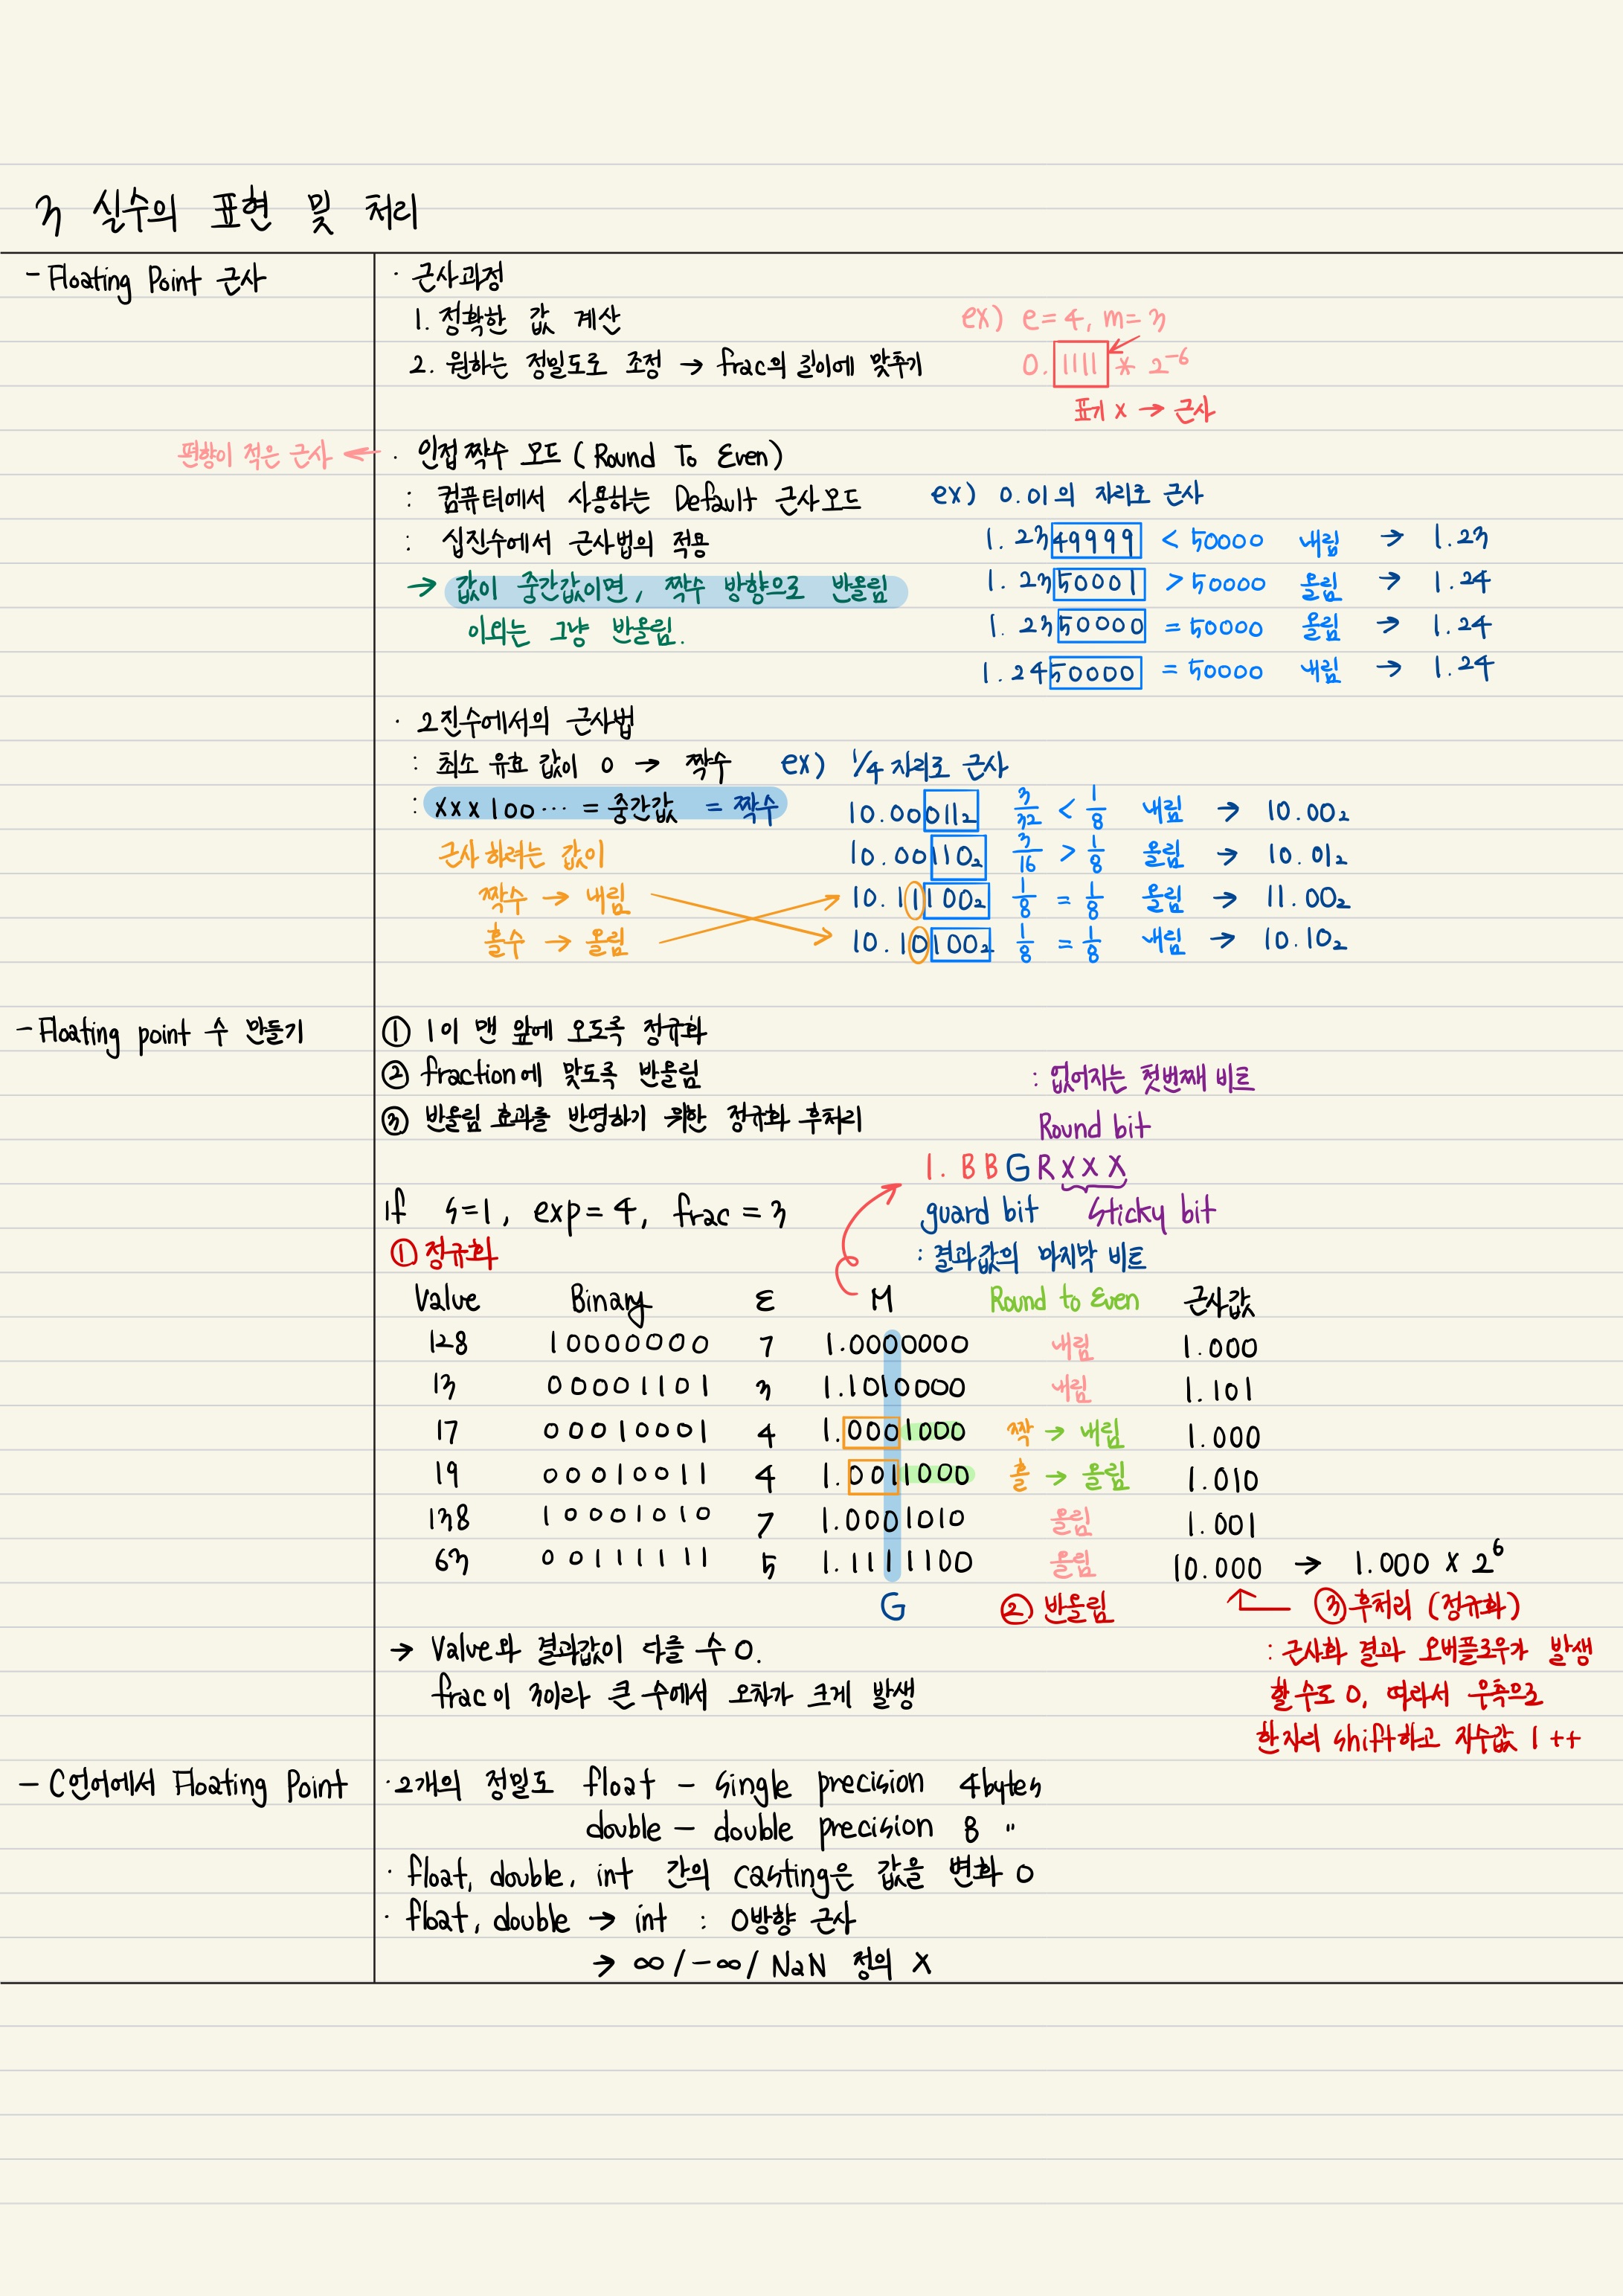 3 실수의 표현 및 처리
- Floating Point 근사
· 근사과정
1. 정확한 값 계산
ex) e=4, m=3
2. 원하는 정밀도로 조정 → frac의 길이에 맞추기
0.1111 * 2⁻⁶
표기 x → 근사
편향이 적은 근사 ←
· 인접짝수 모드 (Round To Even)
: 컴퓨터에서 사용하는 Default 근사모드
ex) 0.01의 자리로 근사
: 십진수에서 근사법의 적용
1.2349999 < 50000 내림 → 1.23
→ 값이 중간값이면, 짝수 방향으로 반올림
1.2350001 > 50000 올림 → 1.24
이외는 그냥 반올림.
1.2350000 = 50000 올림 → 1.24
1.2450000 = 50000 내림 → 1.24
· 2진수에서의 근사법
: 최소 유효 값이 0 → 짝수
ex) 1/4 자리로 근사
: xxx100··· = 중간값 = 짝수
10.00011₂ 3/32 < 1/8 내림 → 10.00₂
근사 하려는 값이
10.00110₂ 3/16 > 1/8 올림 → 10.01₂
짝수 → 내림
10.11100₂ 1/8 = 1/8 올림 → 11.00₂
홀수 → 올림
10.10100₂ 1/8 = 1/8 내림 → 10.10₂
- Floating point 수 만들기
① 1이 맨 앞에 오도록 정규화
② fraction에 맞도록 반올림
③ 반올림 효과를 반영하기 위한 정규화 후처리
: 없어지는 첫번째 비트
Round bit
1. B B G R X X X
guard bit
Sticky bit
: 결과값의 마지막 비트
if s=1, exp=4, frac=3
① 정규화
Value Binary E M Round to Even 근사값
128 10000000 7 1.0000000 내림 1.000
13 00001101 3 1.1010000 내림 1.101
17 00010001 4 1.0001000 짝 → 내림 1.000
19 00010011 4 1.0011000 홀 → 올림 1.010
138 10001010 7 1.0001010 올림 1.001
63 00111111 5 1.1111100 올림 10.000 → 1.000 x 2⁶
G
② 반올림
③ 후처리 (정규화)
→ Value와 결과값이 다를 수 0.
frac이 3이라 큰 수에서 오차가 크게 발생
: 근사화 결과 오버플로우가 발생
할 수도 0, 따라서 우측으로
한자리 shift하고 지수값 1++
- C언어에서 Floating Point
· 2개의 정밀도 float - single precision 4bytes
double - double precision 8 "
· float, double, int 간의 casting은 값을 변화 0
· float, double → int : 0방향 근사
→ ∞/-∞/NaN 정의 X